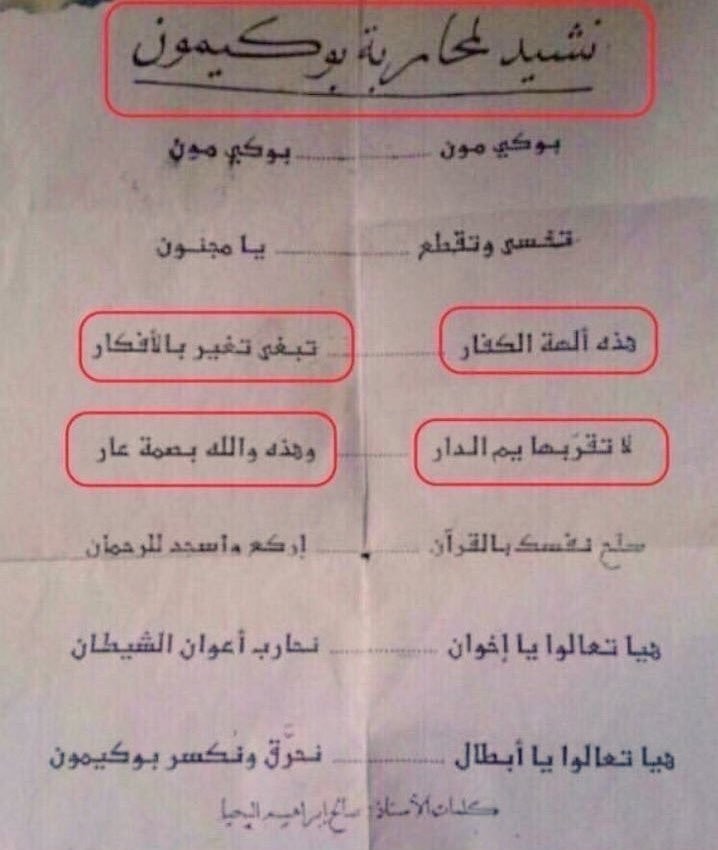 نشيد لمحاربة بوكيمون
بوكي مون ........... بوكي مون
تخسى وتقطع ........... يا مجنون
هذه ألهة الكفار ........... تبغى تغير بالأفكار
لا تقرّبها يم الدار ........... وهذه والله بصمة عار
صلح نفسك بالقرآن ........... إركع واسجد للرحمان
هيا تعالوا يا إخوان ........... نحارب أعوان الشيطان
هيا تعالوا يا أبطال ........... نحرَّق ونكسر بوكيمون
كلمات الأستاذ: صالح إبراهيم اليحيا